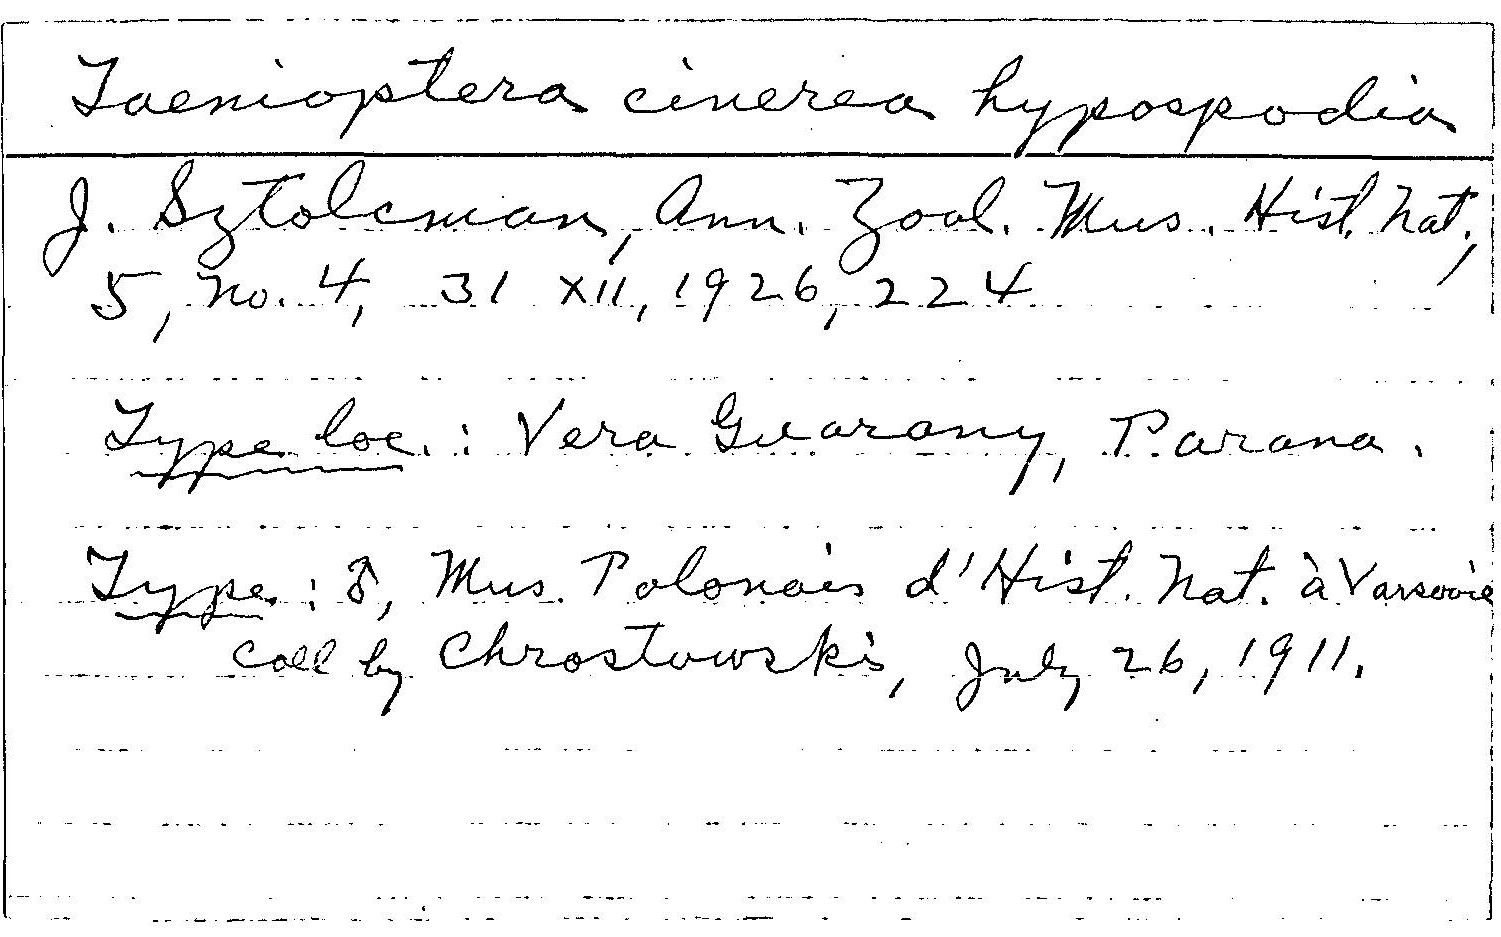 Taenioptera cinerea hypospodia
J. Sztolcman, Ann. Zool. Mus. Hist. Nat.,
5, no. 4, 31 XII, 1926, 224
Type loc.: Vera Guarany, Parana.
Type: ♂, Mus. Polonais d'Hist. Nat. à Varsovie
Coll by Chrostowski, July 26, 1911.